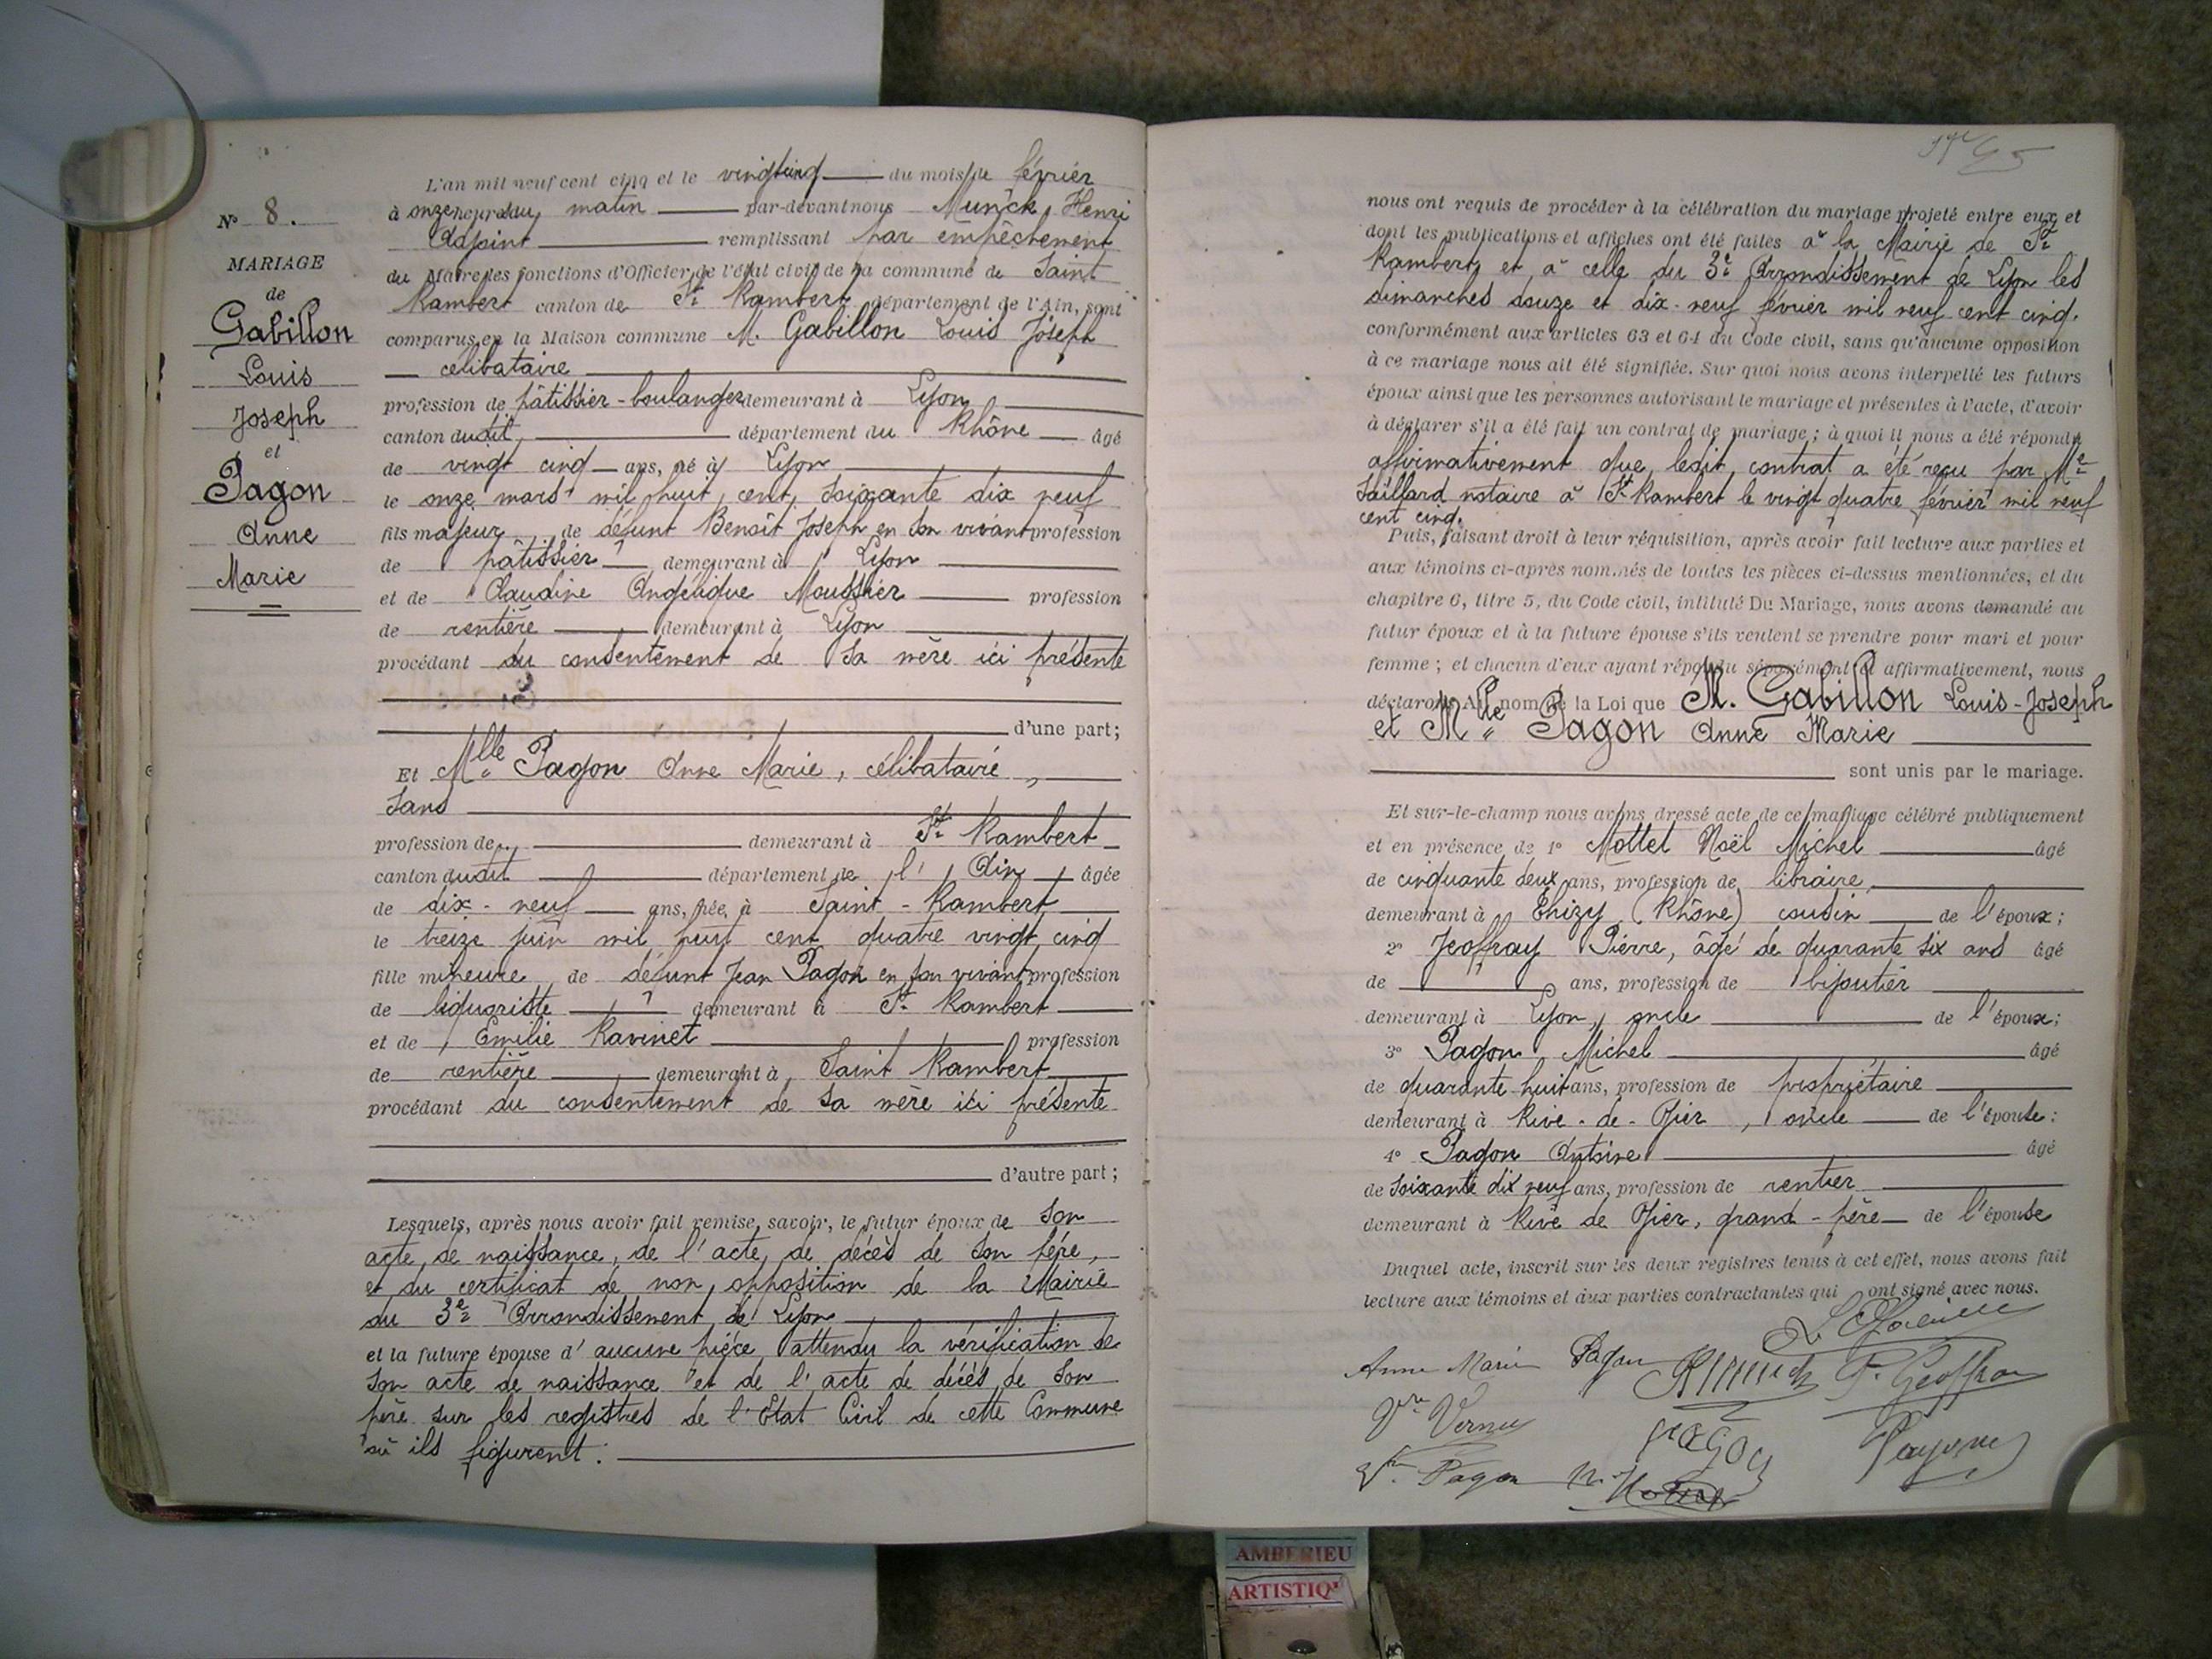 N° 8.
MARIAGE
de
Gabillon
Louis
Joseph
et
Pagon
Anne
Marie
L'an mil neuf cent cinq et le vingt cinq du mois de février
à onze heures du matin par-devant nous Munick, Henri
Adjoint remplissant par empêchement
du Maire les fonctions d'Officier de l'état civil de la commune de Saint
Rambert canton de St Rambert département de l'Ain, sont
comparus en la Maison commune M. Gabillon Louis Joseph
célibataire
profession de pâtissier-boulanger demeurant à Lyon
canton dudit département du Rhône âgé
de vingt cinq ans, né à Lyon
le onze mars mil huit cent soixante dix neuf
fils majeur de défunt Benoît Joseph en son vivant profession
de pâtissier demeurant à Lyon
et de Claudine Angélique Moussier profession
de rentière demeurant à Lyon
procédant du consentement de sa mère ici présente
d'une part;
Et Mlle Pagon Anne Marie, célibataire,
sans
profession de demeurant à St Rambert
canton dudit département de l'Ain âgée
de dix-neuf ans, née à Saint-Rambert
le treize juin mil huit cent quatre vingt cinq
fille mineure de défunt Jean Pagon en son vivant profession
de liquoriste demeurant à St Rambert
et de Emilie Ravinet profession
de rentière demeurant à Saint Rambert
procédant du consentement de sa mère ici présente
d'autre part;
Lesquels, après nous avoir fait remise, savoir, le futur époux de son
acte de naissance, de l'acte de décès de son père,
et du certificat de non opposition de la Mairie
du 3e Arrondissement de Lyon
et la future épouse d'aucune pièce attendu la vérification de
son acte de naissance et de l'acte de décès de son
père sur les registres de l'Etat Civil de cette Commune
où ils figurent.
nous ont requis de procéder à la célébration du mariage projeté entre eux et
dont les publications et affiches ont été faites à la Mairie de St
Rambert et à celle du 3e Arrondissement de Lyon les
dimanches douze et dix-neuf février mil neuf cent cinq.
conformément aux articles 63 et 64 du Code civil, sans qu'aucune opposition
à ce mariage nous ait été signifiée. Sur quoi nous avons interpellé les futurs
époux ainsi que les personnes autorisant le mariage et présentes à l'acte, d'avoir
à déclarer s'il a été fait un contrat de mariage; à quoi il nous a été répondu
affirmativement que ledit contrat a été reçu par Me
Saillard notaire à St Rambert le vingt quatre février mil neuf
cent cinq.
Puis, faisant droit à leur réquisition, après avoir fait lecture aux parties et
aux témoins ci-après nommés de toutes les pièces ci-dessus mentionnées, et du
chapitre 6, titre 5, du Code civil, intitulé Du Mariage, nous avons demandé au
futur époux et à la future épouse s'ils veulent se prendre pour mari et pour
femme; et chacun d'eux ayant répondu séparément et affirmativement, nous
déclarons Au nom de la Loi que M. Gabillon Louis-Joseph
et Mlle Pagon Anne Marie
sont unis par le mariage.
Et sur-le-champ nous avons dressé acte de ce mariage célébré publiquement
et en présence de 1° Mottet Noël Michel âgé
de cinquante deux ans, profession de libraire
demeurant à Thizy (Rhône) cousin de l'époux;
2° Jeoffray Pierre, âgé de quarante six ans âgé
de ans, profession de bijoutier
demeurant à Lyon, oncle de l'époux;
3° Pagon Michel âgé
de quarante huit ans, profession de propriétaire
demeurant à Rive-de-Gier, oncle de l'épouse;
4° Pagon Antoine âgé
de soixante dix neuf ans, profession de rentier
demeurant à Rive de Gier, grand-père de l'épouse
Duquel acte, inscrit sur les deux registres tenus à cet effet, nous avons fait
lecture aux témoins et aux parties contractantes qui ont signé avec nous.
Anne Marie Pagon P. Geoffray
Vve
Vve Pagon
AMBERIEU
ARTISTIQ